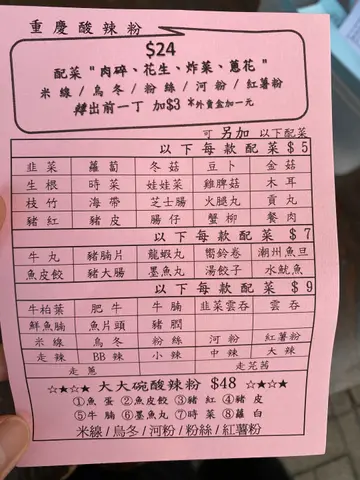 重慶酸辣粉
$24
配菜 "肉碎、花生、炸菜、蔥花"
米線/烏冬/粉絲/河粉/紅薯粉
##出前一丁 加$3 *外賣盒加一元
可另加以下配菜
以下每款配菜 $5
韭菜 蘿蔔 冬菇 豆卜 金菇
生根 時菜 娃娃菜 雞脾菇 木耳
枝竹 海帶 芝士腸 火腿丸 貢丸
豬紅 豬皮 腸仔 蟹柳 餐肉
以下每款配菜 $7
牛丸 豬腩片 龍蝦丸 響鈴卷 潮州魚旦
魚皮餃 豬大腸 墨魚丸 湯餃子 水魷魚
以下每款配菜 $9
牛柏葉 肥牛 牛腩 韭菜雲吞 雲吞
鮮魚腩 魚片頭 豬膶
米線 烏冬 粉絲 河粉 紅薯粉
走辣 BB辣 小辣 中辣 大辣
走蔥 走芫茜
☆★☆★ 大大碗酸辣粉 $48 ☆★☆★
①魚蛋 ②魚皮餃 ③豬紅 ④豬皮
⑤牛腩 ⑥墨魚丸 ⑦時菜 ⑧蘿白
米線/烏冬/河粉/粉絲/紅薯粉